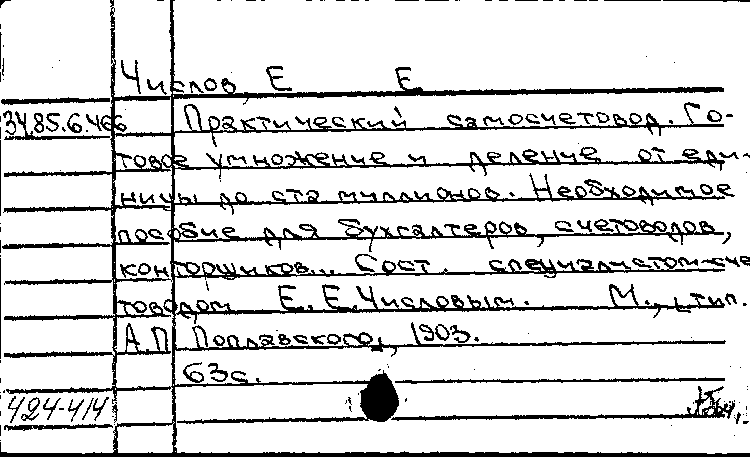 Числов, Е Е
34.85.6.466 Практический самосчетовод. Го-
товое умножение и деление от еди-
ницы до ста миллионов. Необходимое
пособие для бухгалтеров, счетоводов,
конторщиков... Сост. специалистом-сче
товодом Е. Е. Числовым. М., [тип.
А.П. Поплавского], 1903.
63с.
424-414